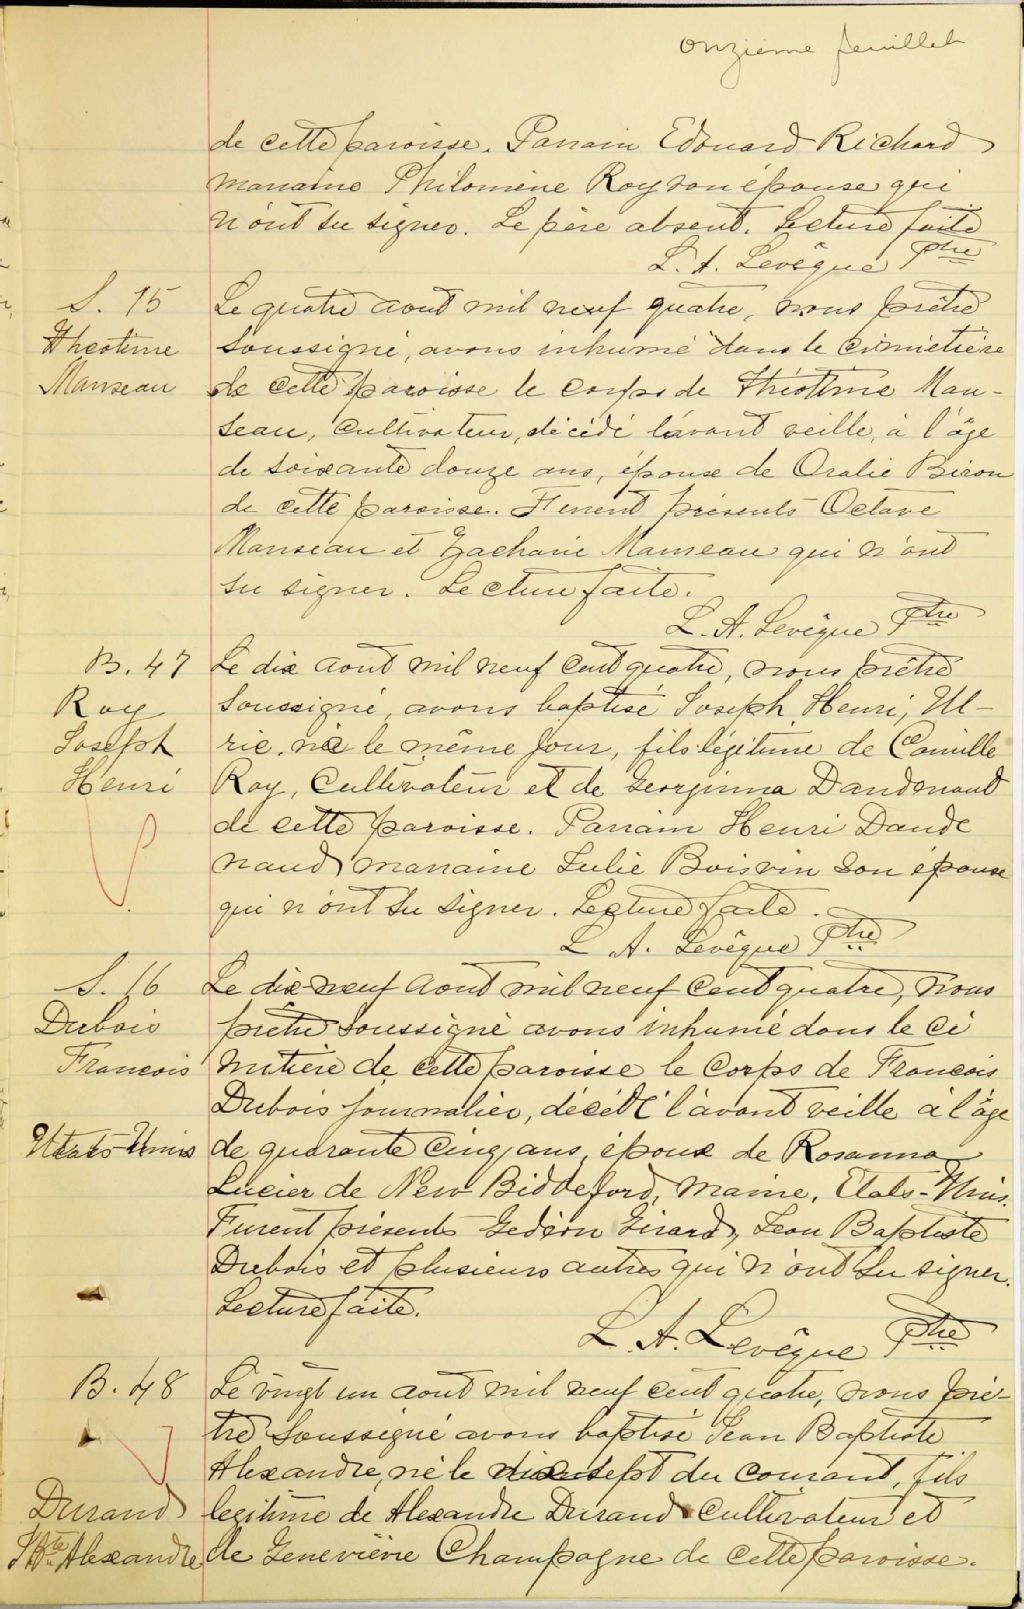 onzième feuillet
de cette paroisse. Parrain Edouard Richard
marraine Philomène Roy son épouse qui
n'ont su signer. Le père absent. Lecture faite
L. A. Levêque Ptre
S. 15
Théotime
Manseau
Le quatre aout mil neuf quatre, nous prêtre
soussigné, avons inhumé dans le cimietière
de cette paroisse le corps de Théotime Man-
seau, cultivateur, décédé l'avant veille, à l'âge
de soixante douze ans, époux de Oralie Biron
de cette paroisse. Furent présents Octave
Manseau et Zacharie Manseau qui n'ont
su signer. Lecture faite.
L. A. Levêque Ptre
B. 47
Roy
Joseph
Henri
Le dix aout mil neuf cent quatre, nous prêtre
soussigné, avons baptisé Joseph, Henri, Ul-
ric, né le même jour, fils légitime de Camille
Roy, cultivateur et de Georginna Dandenault
de cette paroisse. Parrain Henri Dande
naud marraine Julie Boisvin son épouse
qui n'ont su signer. Lecture faite.
L. A. Levêque Ptre
S. 16
Dubois
Francois
Etats-Unis
Le dix-neuf aout mil neuf cent quatre, nous
prêtre soussigné avons inhumé dans le ci
mitière de cette paroisse le corps de Francois
Dubois journalier, décédé l'avant veille à l'âge
de quarante cinq ans, époux de Rosanna
Lucier de New Biddeford, Maine, Etats-Unis.
Furent présents Gedéon Girard, Jean Baptiste
Dubois et plusieurs autres qui n'ont su signer.
Lecture faite.
L. A. Levêque Ptre
B. 48
Durand
J Bte Alexandre
Le vingt un aout mil neuf cent quatre, nous prê-
tre soussigné avons baptisé Jean Baptiste
Alexandre, né le dix sept du courant, fils
legitime de Alexandre Durand cultivateur et
de Geneviève Champagne de cette paroisse.